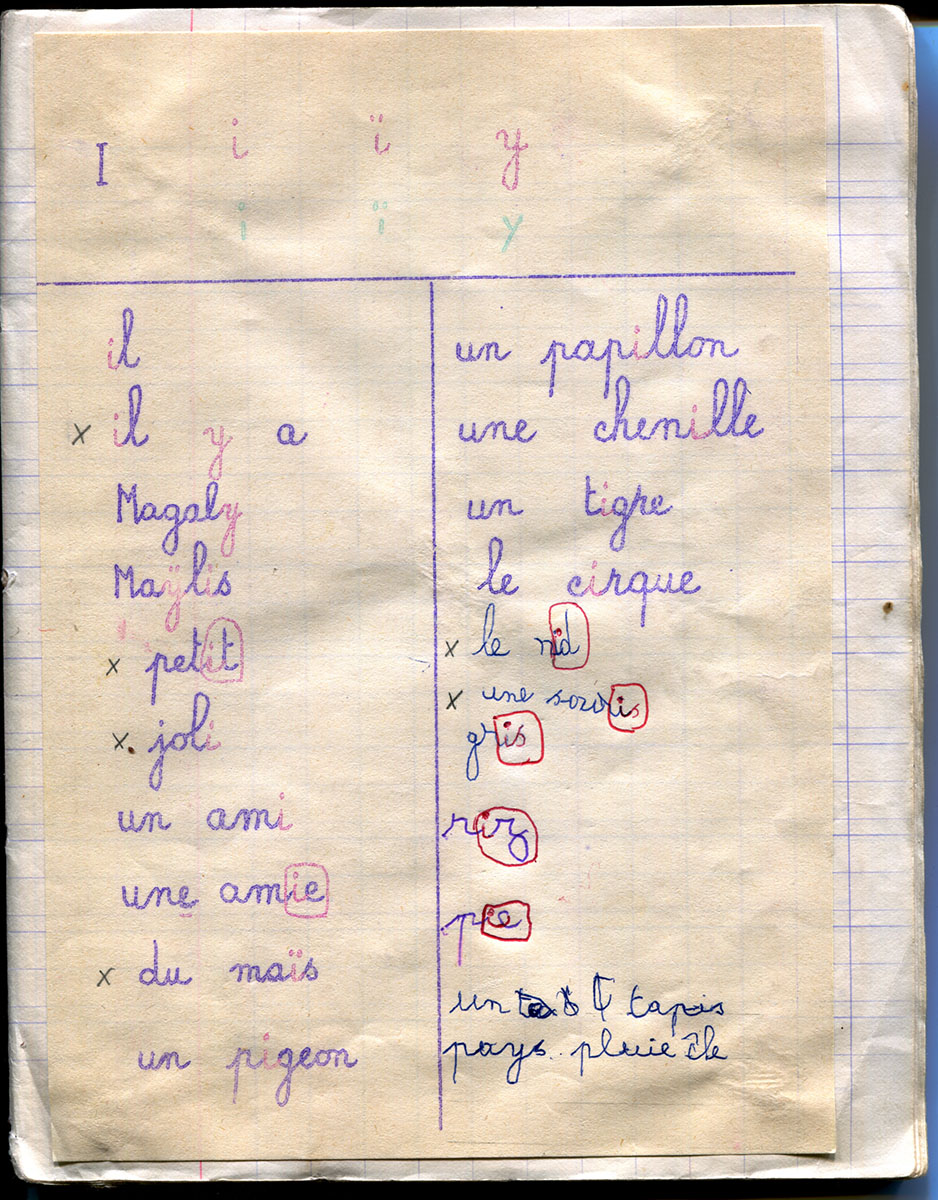 I i ï y
i ï y
il
x il y a
Magaly
Maÿlis
x petit
x. joli
un ami
une amie
x du maïs
un pigeon
un papillon
une chenille
un tigre
le cirque
x le nid
x une souris
gris
riz
pie
un tapis
pays pluie île